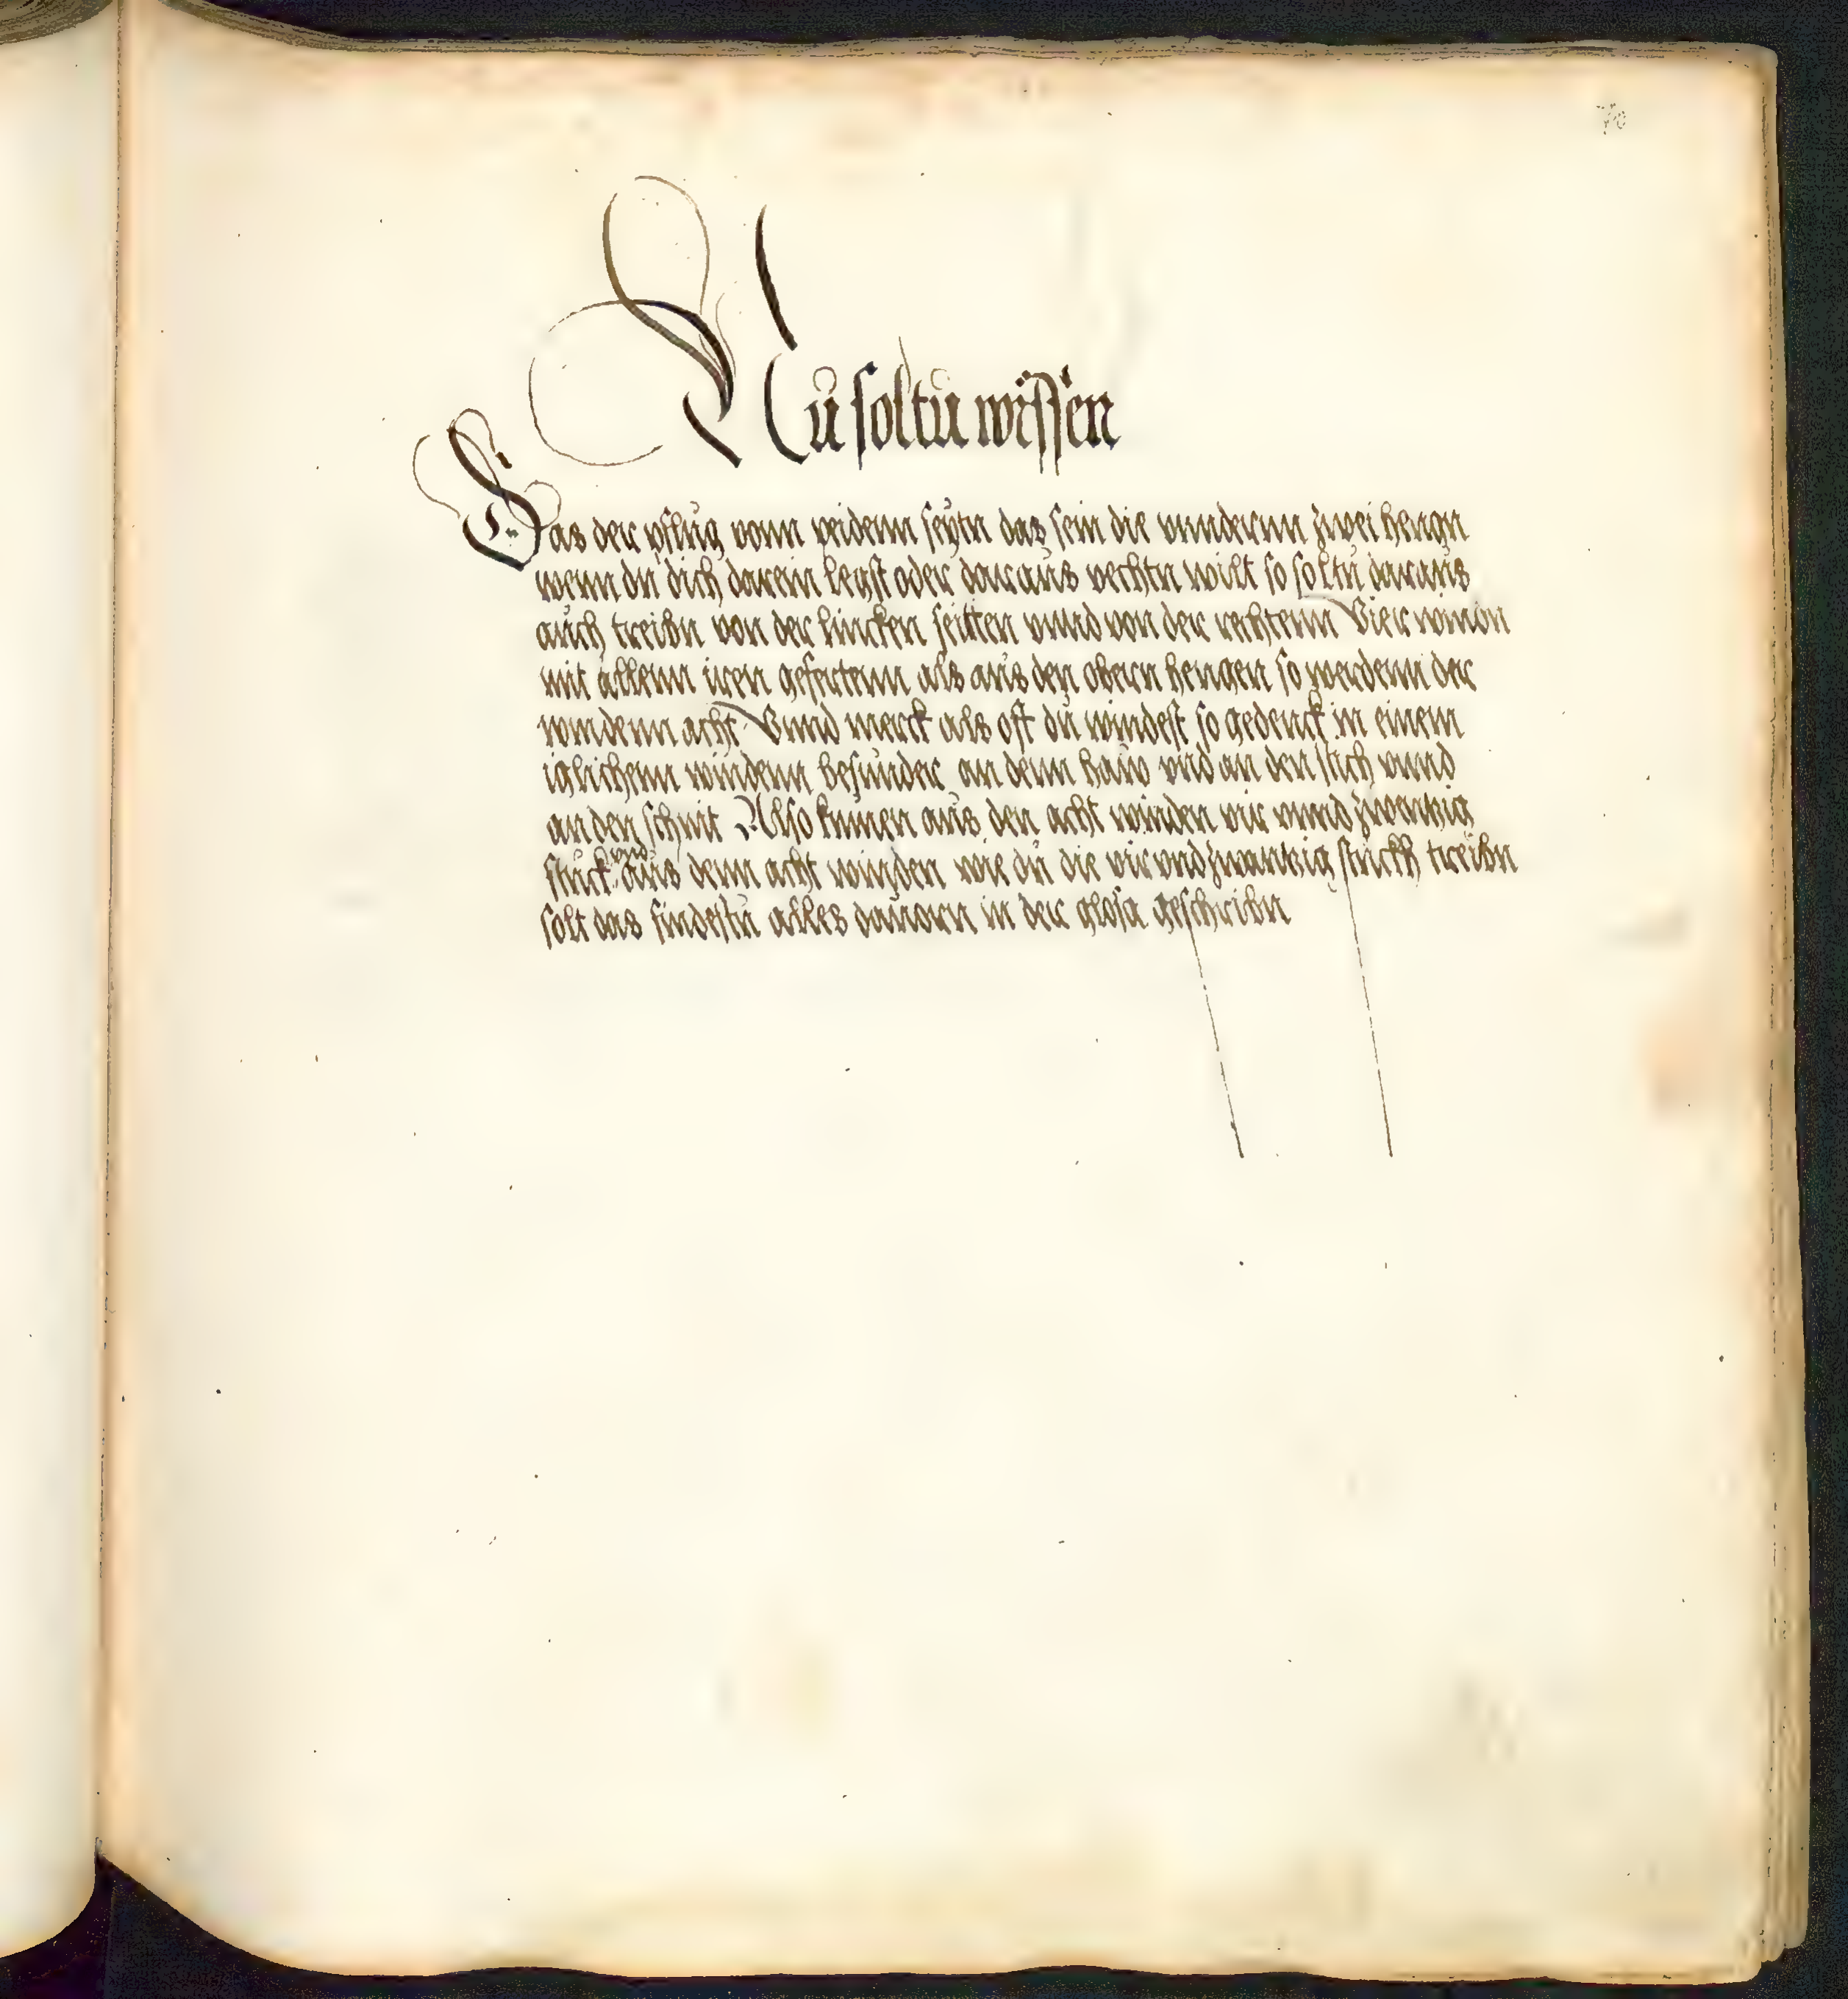 Nu soltu wissen
Das der pflug vonn peidenn seytn das sein die vnndernn zwei hengn
wenn du dich darein legst oder daraus vechtn wilt so soltu daraus
auch treibn von der lincken seitten vnnd von der rechtenn Vier windn
mit allenn iren gefertenn als aus den obern hengen so werdenn der
windenn acht Vnnd merck als oft du windest so gedenck in einem
iglichenn windenn besunder an denn haw vnd an den stich vnnd
an den schnit Also kumen aus den acht winden vir vnnd zwentzig
stuck vnd aus denn acht winden wie du die vir vnd zwantzig stuckh treibn
solt das findestu alles dauorn in der glosa geschribn